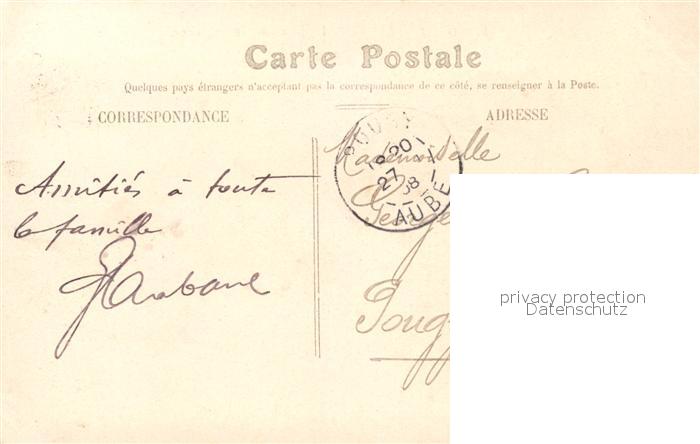 Carte Postale
Quelques pays étrangers n'acceptant pas la correspondance de ce côté, se renseigner à la Poste.
CORRESPONDANCE
ADRESSE
Mademoiselle
18 20
27
08
AUBE
Amitiés à toute
la famille
privacy protection
Datenschutz